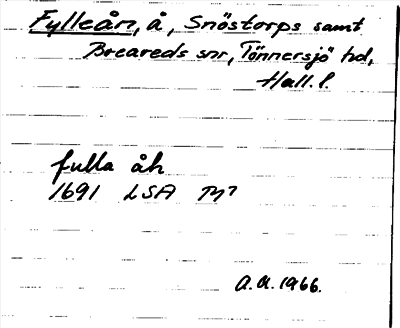 Fylleån, å, Snöstorps samt
Breareds snr, Tönnersjö hd,
Hall. l.
fulla åh
1691 LSA M7
A.A. 1966.